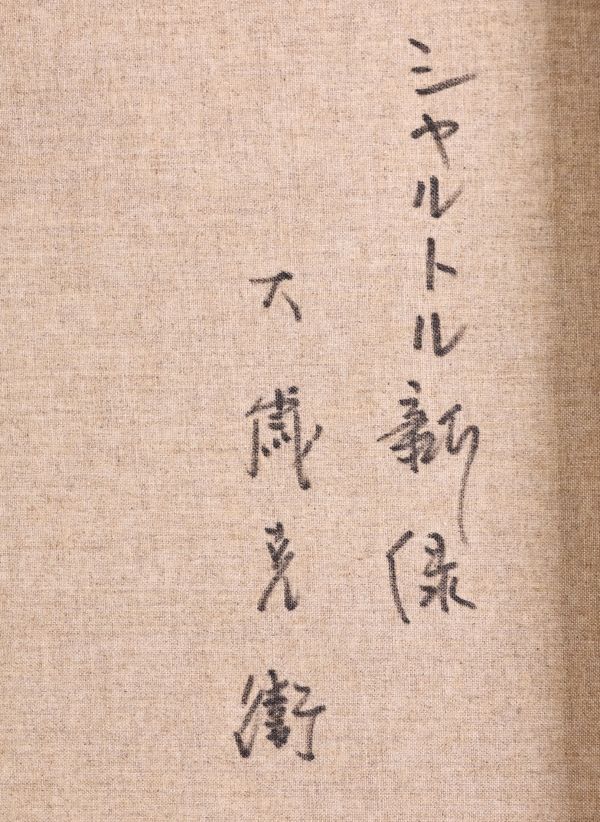 シャルトル新緑
大歳克衛